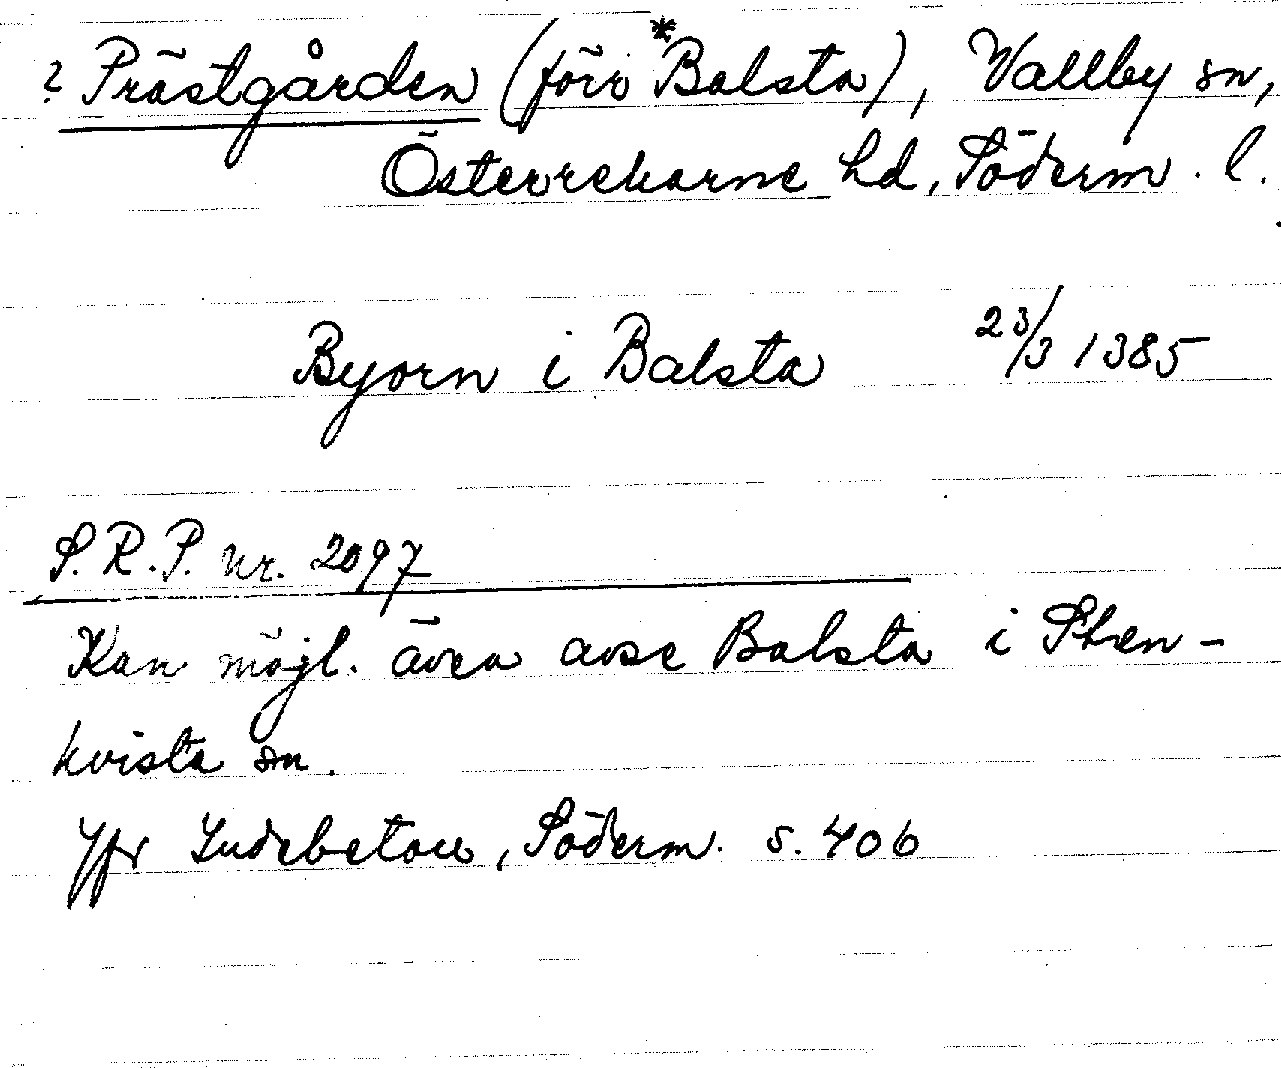 ? Prästgården (förr *Balsta), Vallby sn,
Österrekarne hd, Söderm. l.
Byorn i Balsta 23/3 1385
S.R.P. nr. 2097
Kan möjl. även avse Balsta i Sten-
kvista sn.
Jfr Indebetou, Söderm. s. 406